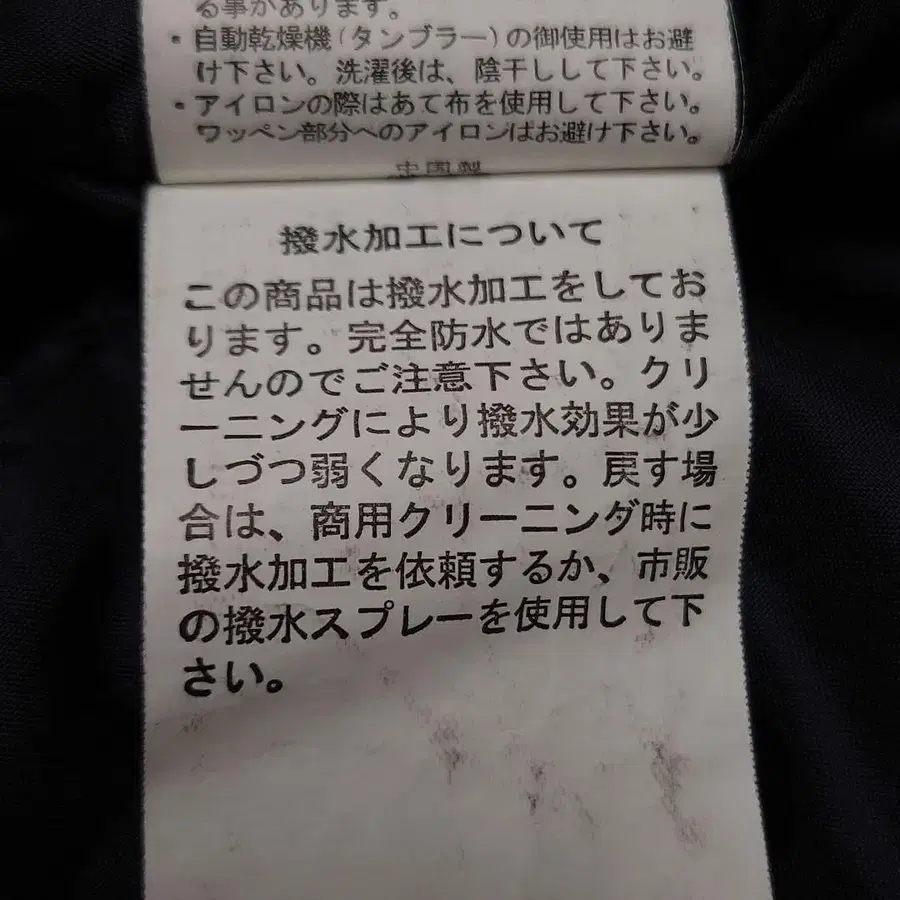 る事があります。
・自動乾燥機(タンブラー)の御使用はお避
け下さい。洗濯後は、陰干しして下さい。
・アイロンの際はあて布を使用して下さい。
ワッペン部分へのアイロンはお避け下さい。
中国製
撥水加工について
この商品は撥水加工をしてお
ります。完全防水ではありま
せんのでご注意下さい。クリ
ーニングにより撥水効果が少
しづつ弱くなります。戻す場
合は、商用クリーニング時に
撥水加工を依頼するか、市販
の撥水スプレーを使用して下
さい。